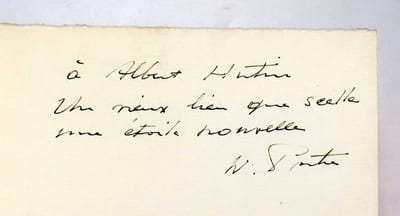 à Albert Hutin
Un vieux lien que scelle
une étoile nouvelle